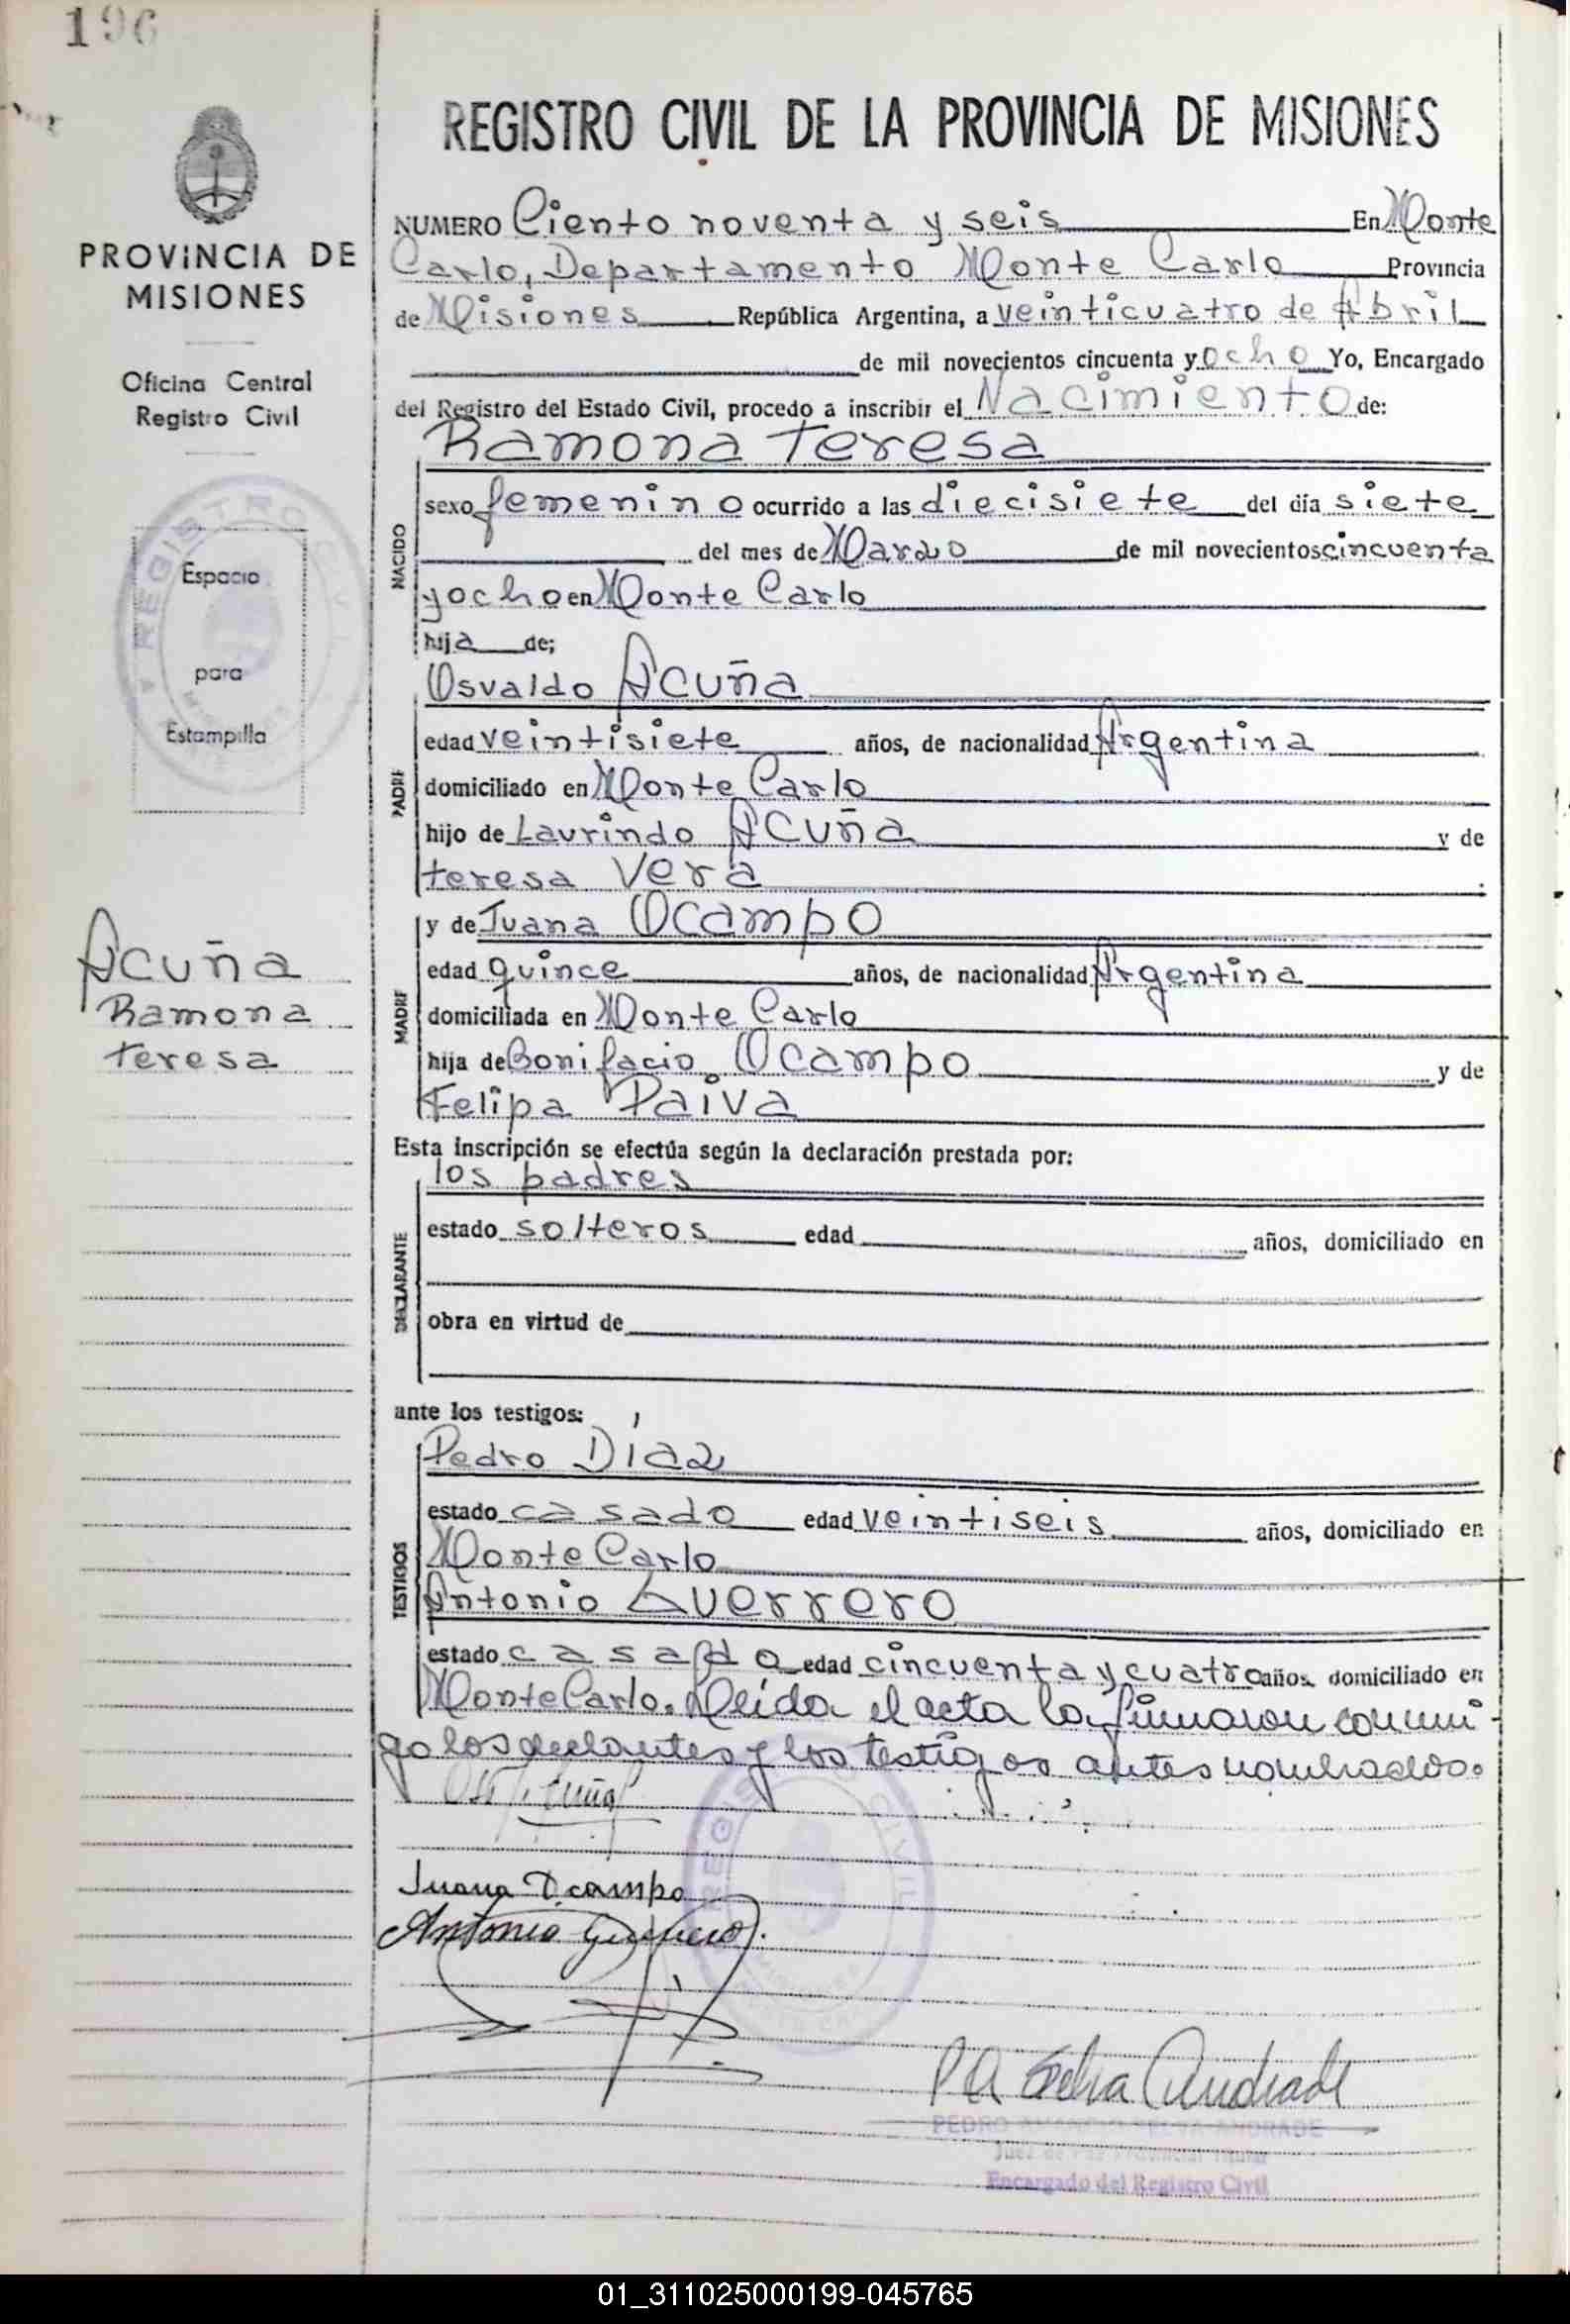 196
PROVINCIA DE
MISIONES
Oficina Central
Registro Civil
Espacio
para
Estampilla
REGISTRO CIVIL
Acuña
Ramona
Teresa
REGISTRO CIVIL DE LA PROVINCIA DE MISIONES
NUMERO Ciento noventa y seis En Monte
Carlo, Departamento Monte Carlo Provincia
de Misiones República Argentina, a veinticuatro de Abril
de mil novecientos cincuenta y ocho Yo, Encargado
del Registro del Estado Civil, procedo a inscribir el Nacimiento de:
Ramona Teresa
NACIDO
sexo femenino ocurrido a las diecisiete del día siete
del mes de Marzo de mil novecientos cincuenta
y ocho en Monte Carlo
hija de;
Osvaldo Acuña
PADRE
edad veintisiete años, de nacionalidad Argentina
domiciliado en Monte Carlo
hijo de Laurindo Acuña y de
Teresa Vera
y de Juana Ocampo
MADRE
edad quince años, de nacionalidad Argentina
domiciliada en Monte Carlo
hija de Bonifacio Ocampo y de
Felipa Paiva
Esta inscripción se efectúa según la declaración prestada por:
los padres
DECLARANTE
estado solteros edad años, domiciliado en
obra en virtud de
ante los testigos:
Pedro Díaz
TESTIGOS
estado casado edad veintiseis años, domiciliado en
Monte Carlo
Antonio Guerrero
estado casado edad cincuenta y cuatro años, domiciliado en
Monte Carlo. Leída el acta la firmaron conmi-
go los declantes y los testigos antes nombrados.
Acuña
Juana Ocampo
Antonio Guerrero
REGISTRO CIVIL
P A Selva Andrade
PEDRO AMANCIO SELVA ANDRADE
Juez de Paz Provincial Titular
Encargado del Registro Civil
01_311025000199-045765